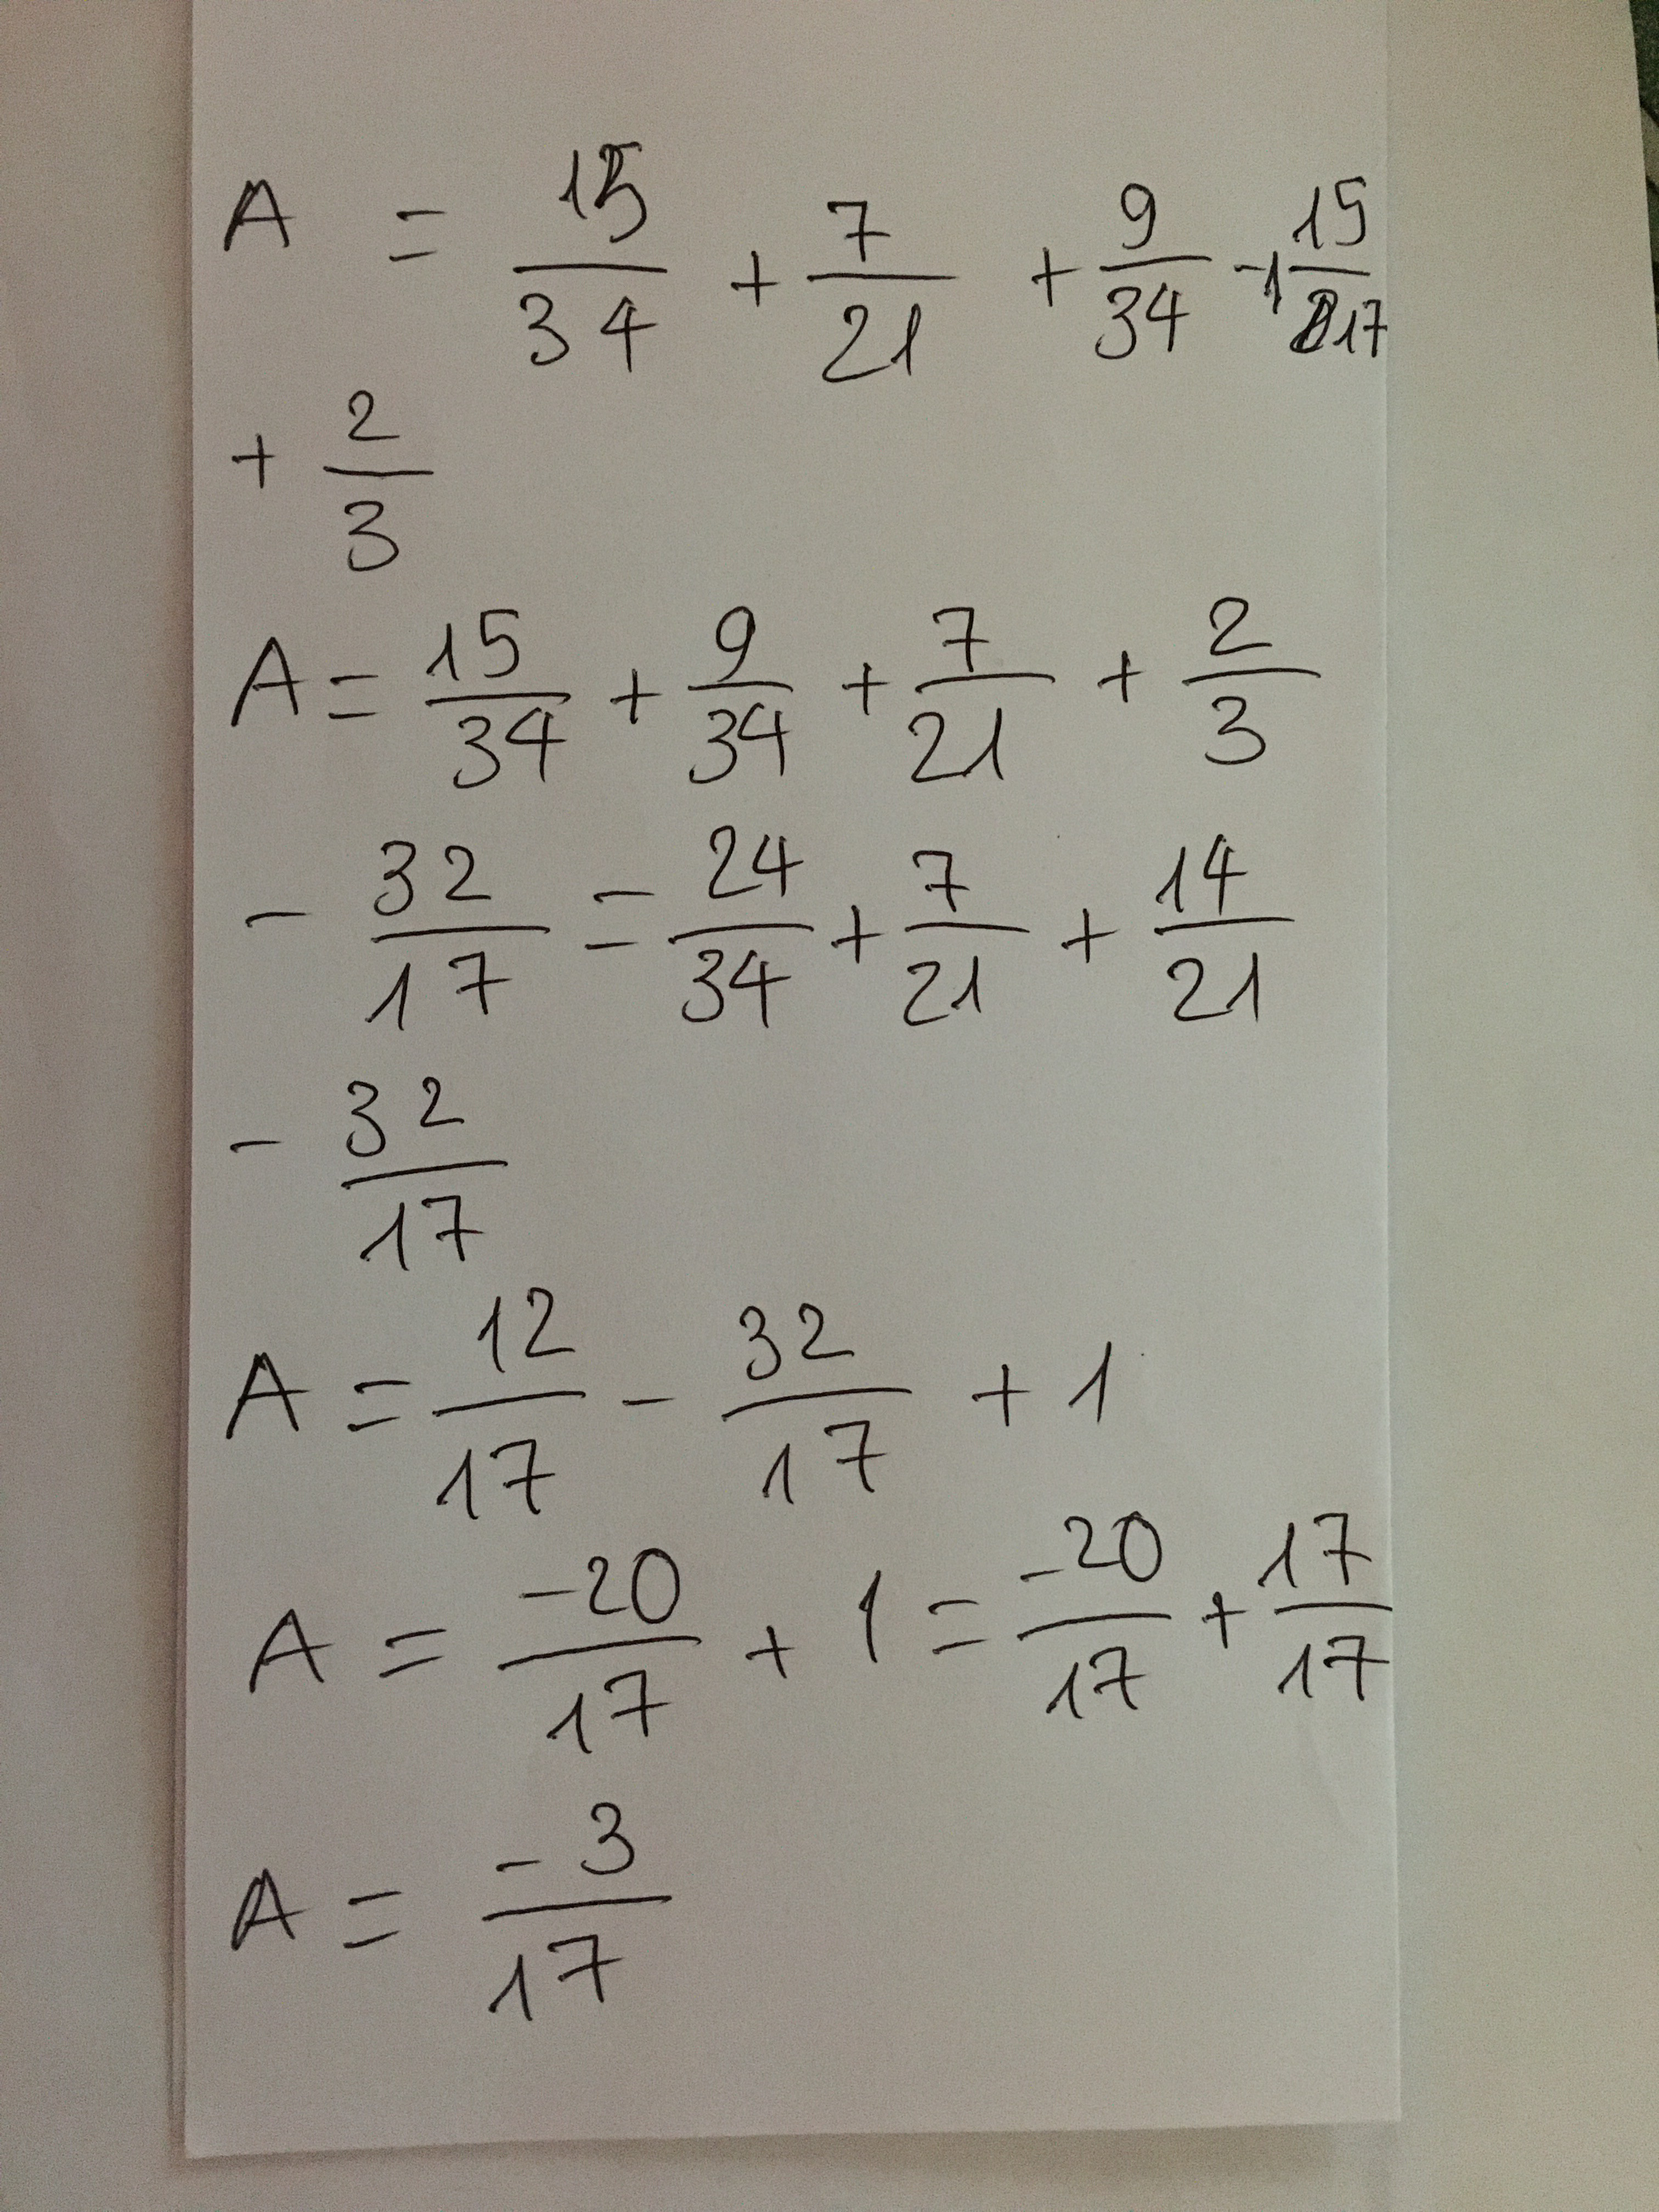 A = 15/34 + 7/21 + 9/34 - 1 15/17
+ 2/3
A = 15/34 + 9/34 + 7/21 + 2/3
- 32/17 = 24/34 + 7/21 + 14/21
- 32/17
A = 12/17 - 32/17 + 1
A = -20/17 + 1 = -20/17 + 17/17
A = -3/17